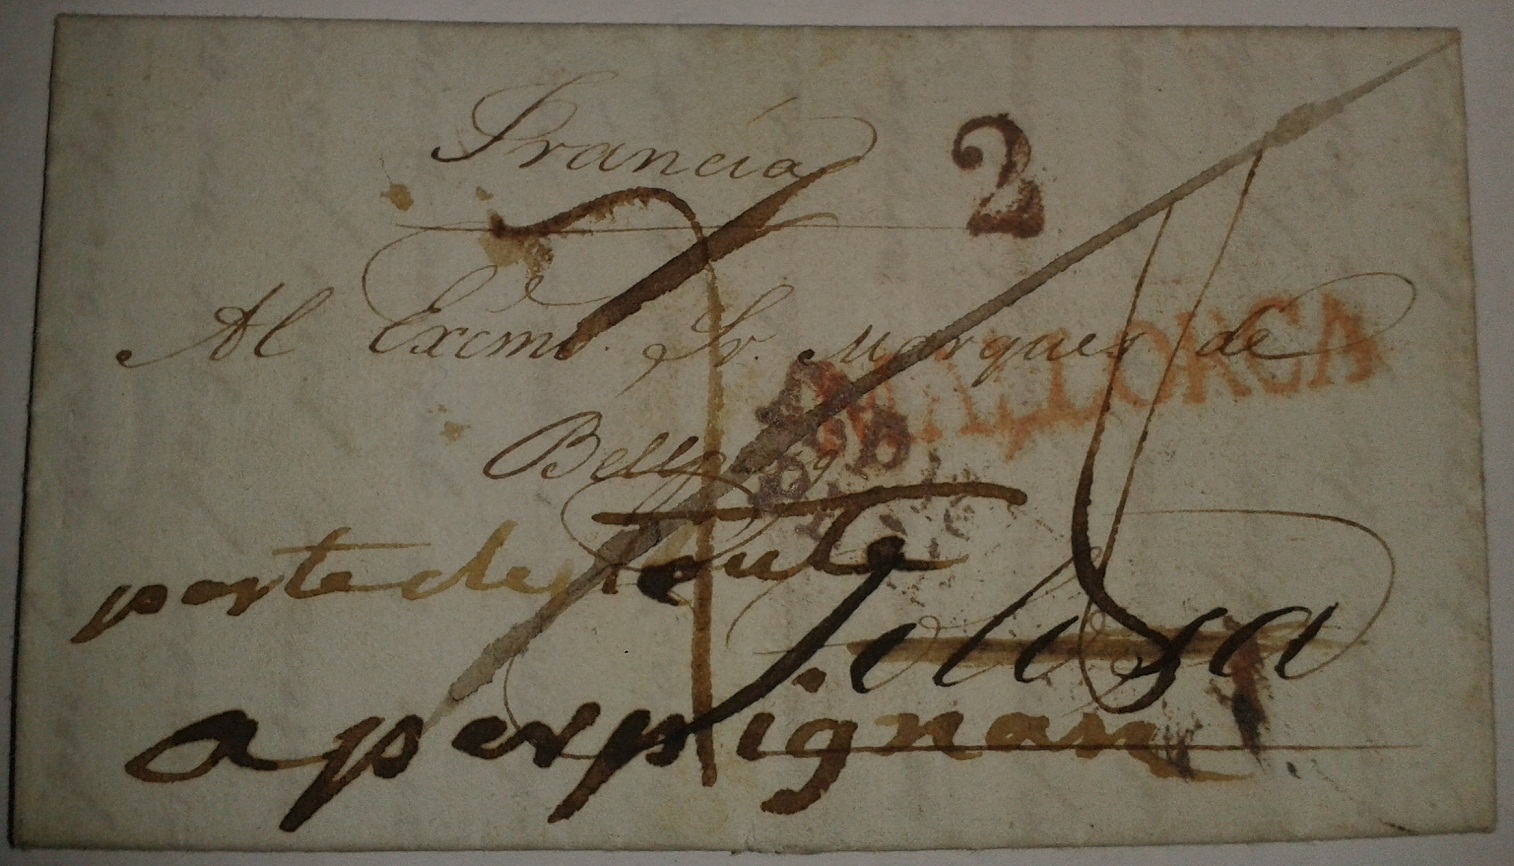 Francia
2
Al Excmo. Sr. Marques de
MALLORCA
poste restante
Tolosa
a perpignan